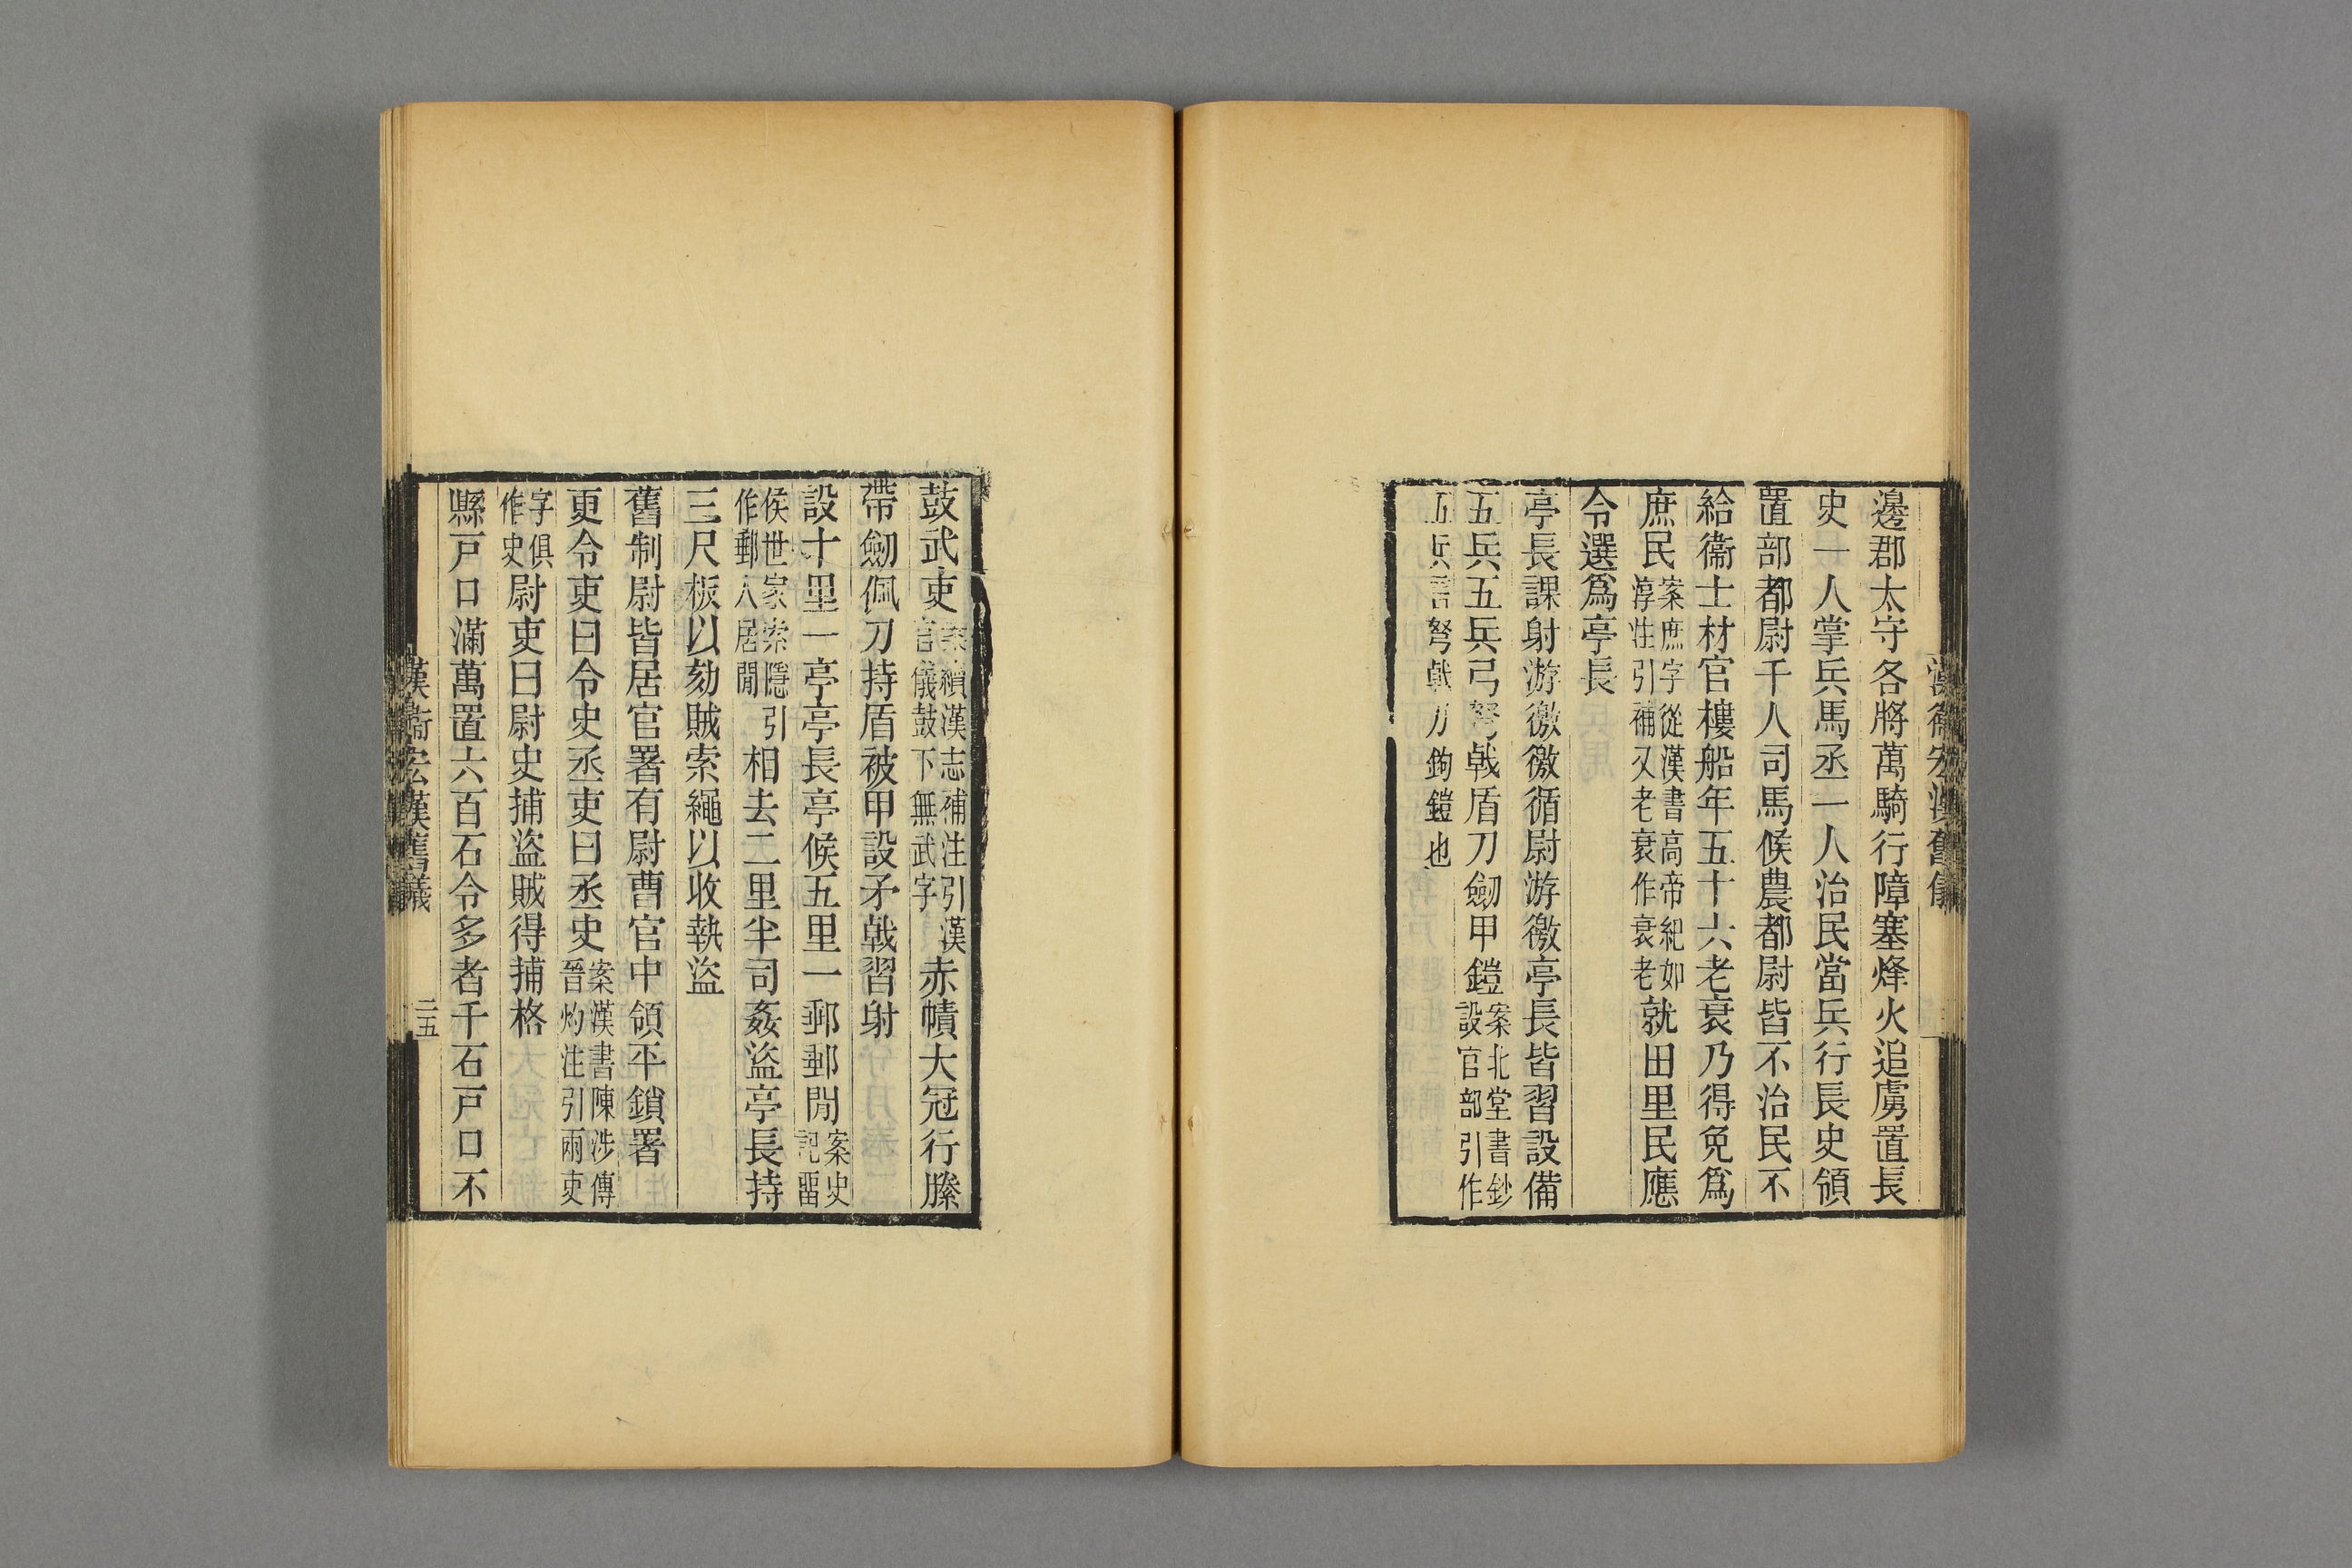 邊郡太守各將萬騎行障塞烽火追虜置長
史一人掌兵馬丞一人治民當兵行長史領
置部都尉千人司馬候農都尉皆不治民不
給衞士材官樓船年五十六老衰乃得免爲
庶民案庶字從漢書高帝紀如淳注引補又老衰作衰老就田里民應
令選爲亭長
亭長課射游徼徼循尉游徼亭長皆習設備
五兵五兵弓弩戟盾刀劒甲鎧案北堂書鈔設官部引作
五兵言弩戟刀鉤鎧也
鼓武吏案續漢志補注引漢官儀鼓下無武字赤幘大冠行縢
帶劒佩刀持盾被甲設矛戟習射
設十里一亭亭長亭候五里一郵郵閒案史記畱
侯世家索隱引作郵人居閒相去二里半司姦盜亭長持
三尺板以劾賊索繩以收執盜
舊制尉皆居官署有尉曹官中領平鎖署
更令吏曰令史丞吏曰丞史案漢書陳涉傳晉灼注引兩吏
字俱作史尉吏曰尉史捕盜賊得捕格
縣戸口滿萬置六百石令多者千石戸口不
漢衞宏漢舊儀
二五